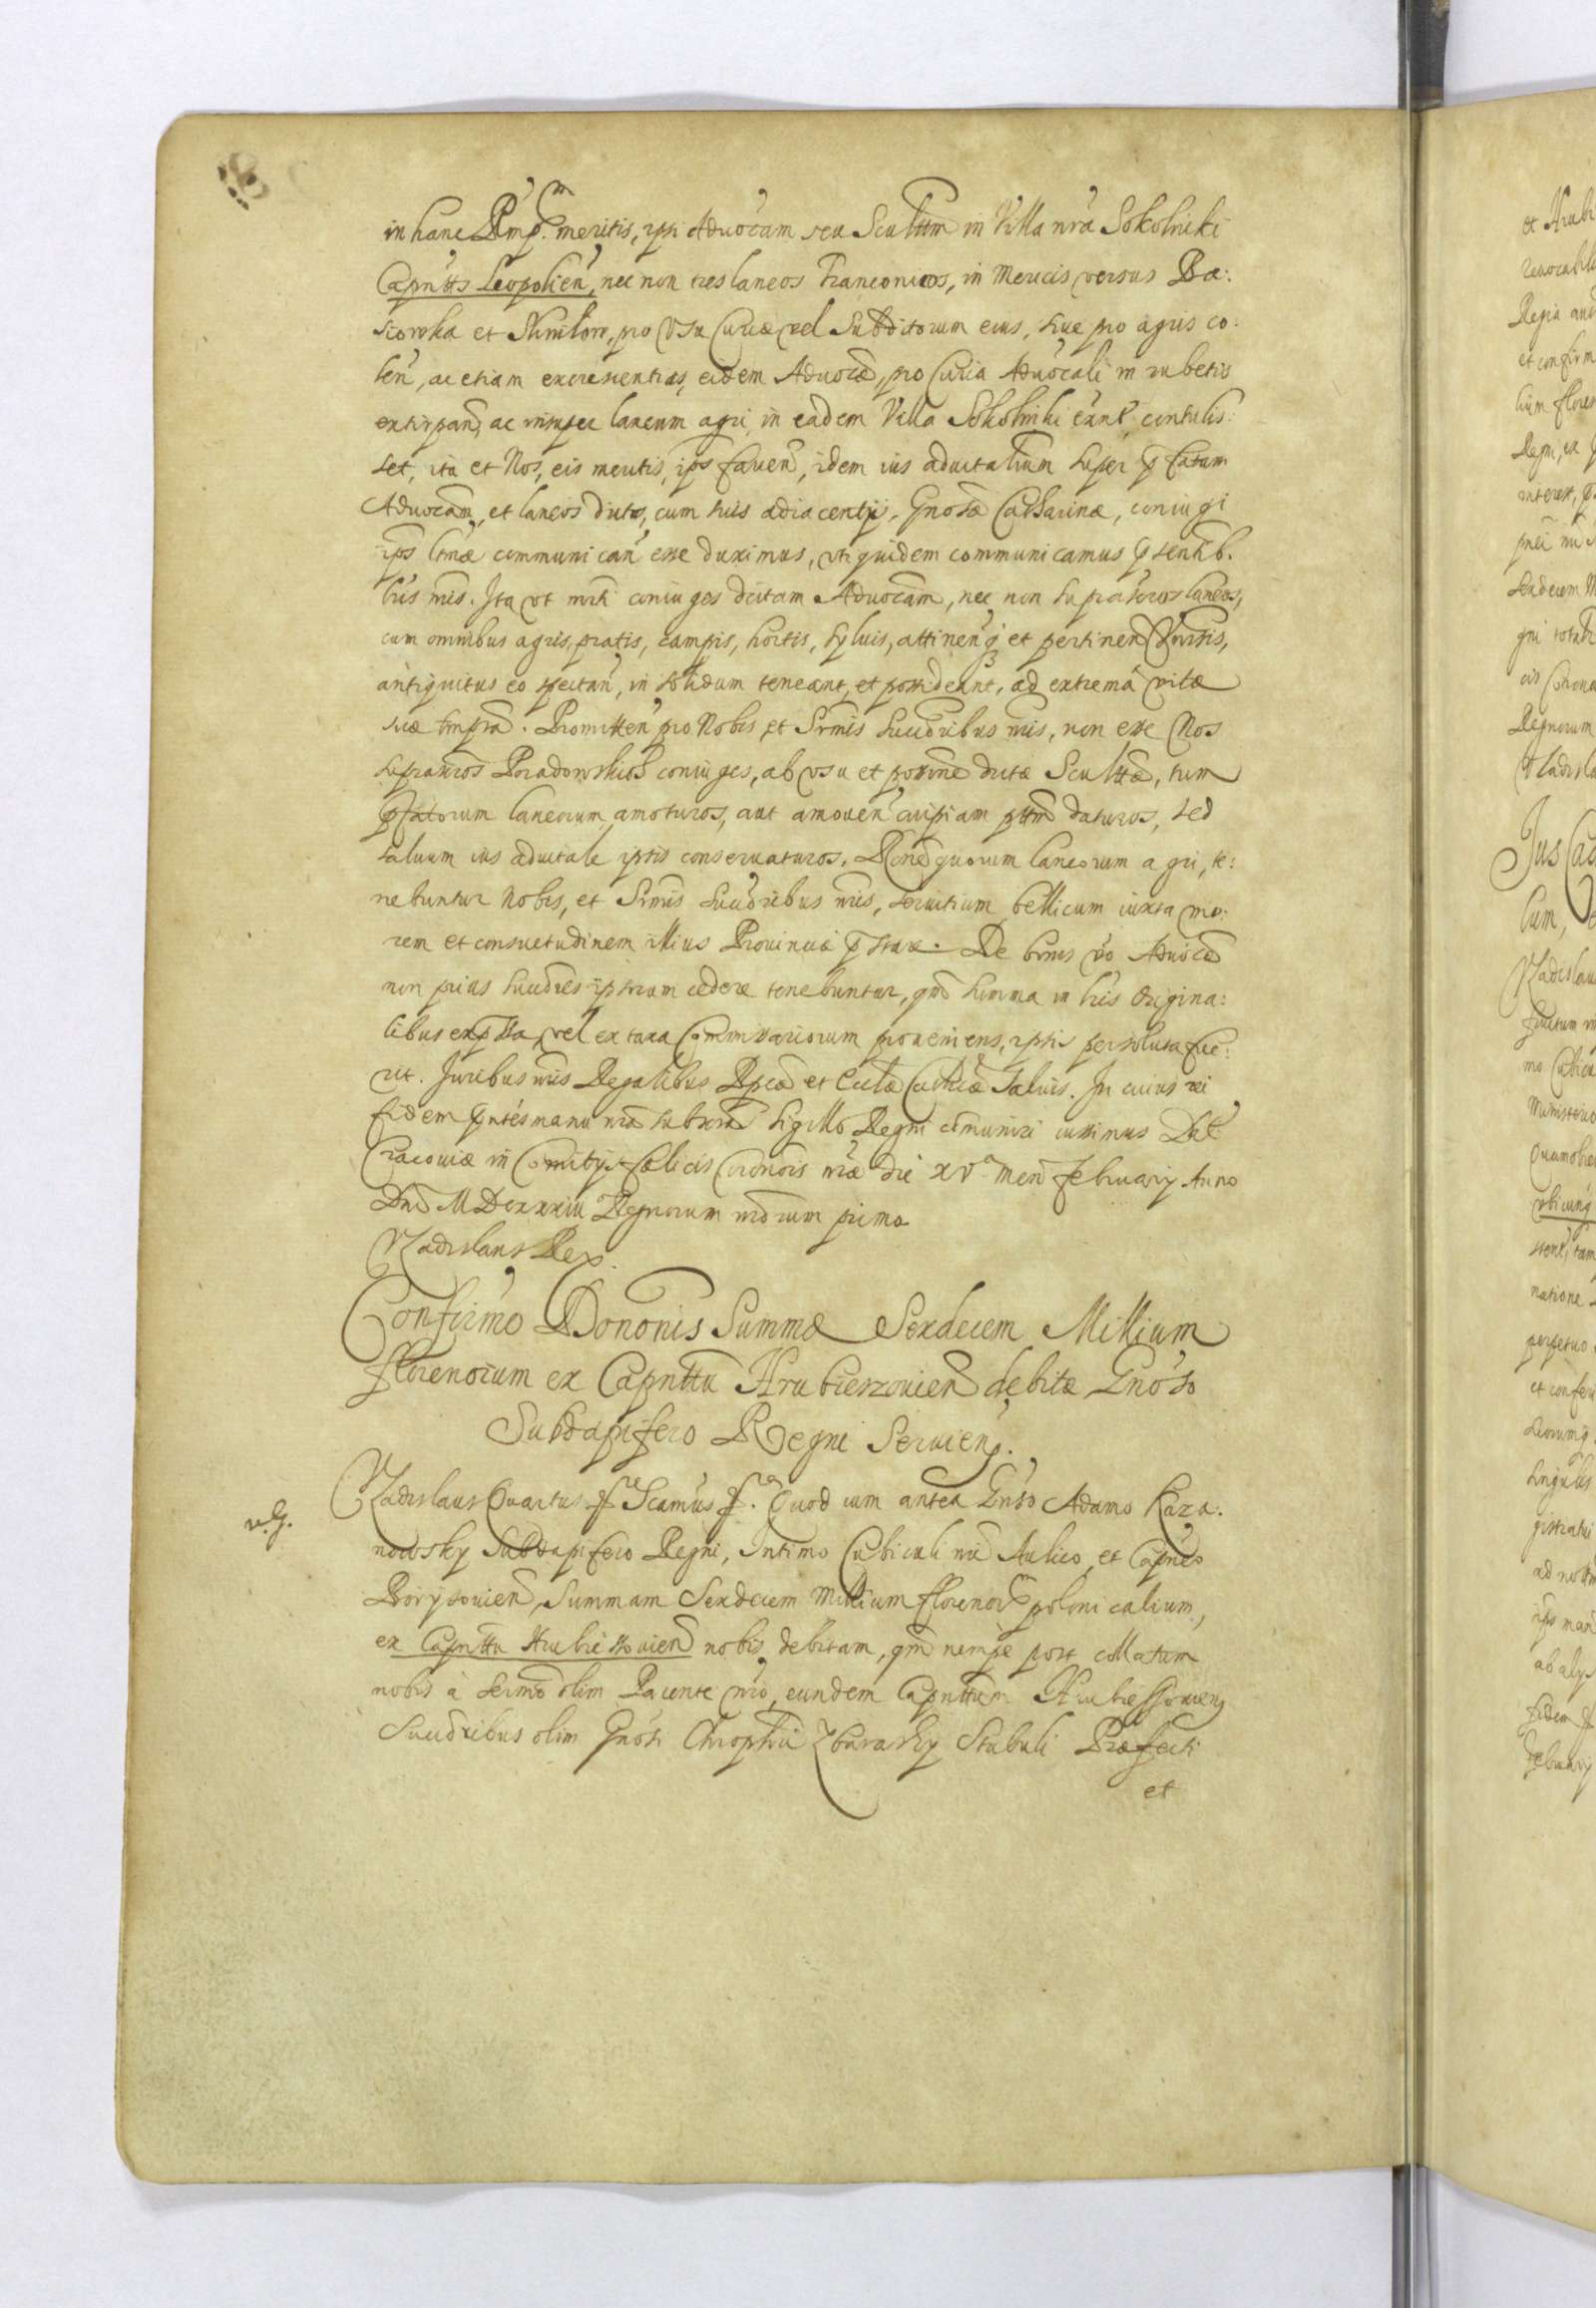 in hanc Rempq. meritis, ipsi Advocãm seu Scultm in Villa nra Sokolniki
Capnttus Leopolien, nec non tres laneos Franconicos, in Mericis versus Ba:
sicowka et Skmilow, pro Vsu Curiæ vel Subditorum eius, siue pro agris co:
len, ac etiam excrescentias, eidem Advocæ, pro Curia Advocali in rubetis
extirpan, ac insuper laneum agri, in eadem Villa Sokolniki exnt, contulis:
set, ita et Nos, eis meritis, ips fauen, idem ius aduitalium super pfatam
Advocam, et laneos dictos, cum suis adiacentijs, Gnosæ Catharinæ, coniugi
ips ltmæ communican esse duximus, vti quidem communicamus psentib.
lris nris. Ita vt mrti coniuges dictam Advocam, nec non suprascros laneos,
cum omnibus agris, pratis, campis, hortis, syluis, attinen q et pertinen Vnrsis,
antiquitus eo spectan, in solidum teneant, et possideant, ad extrema vitæ
suæ tmpra. Promitten pro Nobis, et Srmis Succribus nris, non esse Nos
supranros Poradowskios coniuges, ab vsu et possne dictæ Sculttæ, tum
pfatorum laneorum, amoturos, aut amouen cuipiam pttm daturos, sed
saluum ius aduitale ipsis conseruaturos. Rone quorum laneorum agri, te:
nebuntur Nobis, et Srmis Succribus nris, seruitium bellicum iuxta mo:
rem et consuetudinem illius Prouinciæ pstare. De bonis vo Advocæ
non prius Succres ipsorum cedere tenebuntur, qm summa in lris origina:
libus expssa, vel ex taxa Commissariorum proueniens, ipsis persoluta fue:
rit. Iuribus nris Regalibus Rpcæ et Ecclæ Cathcæ saluis. In cuius rei
fidem pntes manu nra subscras sigillo Regni cõmuniri iussimus Dat
Cracouiæ in Comitijs fælicis Coronois nræ die XVa men February Anno
Dni MDCXXXIII Regnorum nrorum primo
Vladislaus Rex.
Confirmo Dononis Summæ Sexdecem Millium
florenorum ex Capnttu Hrubieszouien debitæ Gnoso
Subdapifero Regni Seruien.
v. G.
Vladislaus Quartus etc Scamus etc. Quod cum antea Gnso Adamo Kaza:
nowsky Subdapifero Regni, Intimo Cubiculi nri Aulico, et Capneo
Borysouien, Summam Sexdecem Millium florenor polonicalium,
ex Capnttu Hrubieszouien nobis debitam, qm nempe post collatum
nobis à Sermo olim Parente nro, eundem Capnttum Hrubieszouien
Succribus olim Gnosi Chrophri Zbarasky Stabuli Præfecti
et